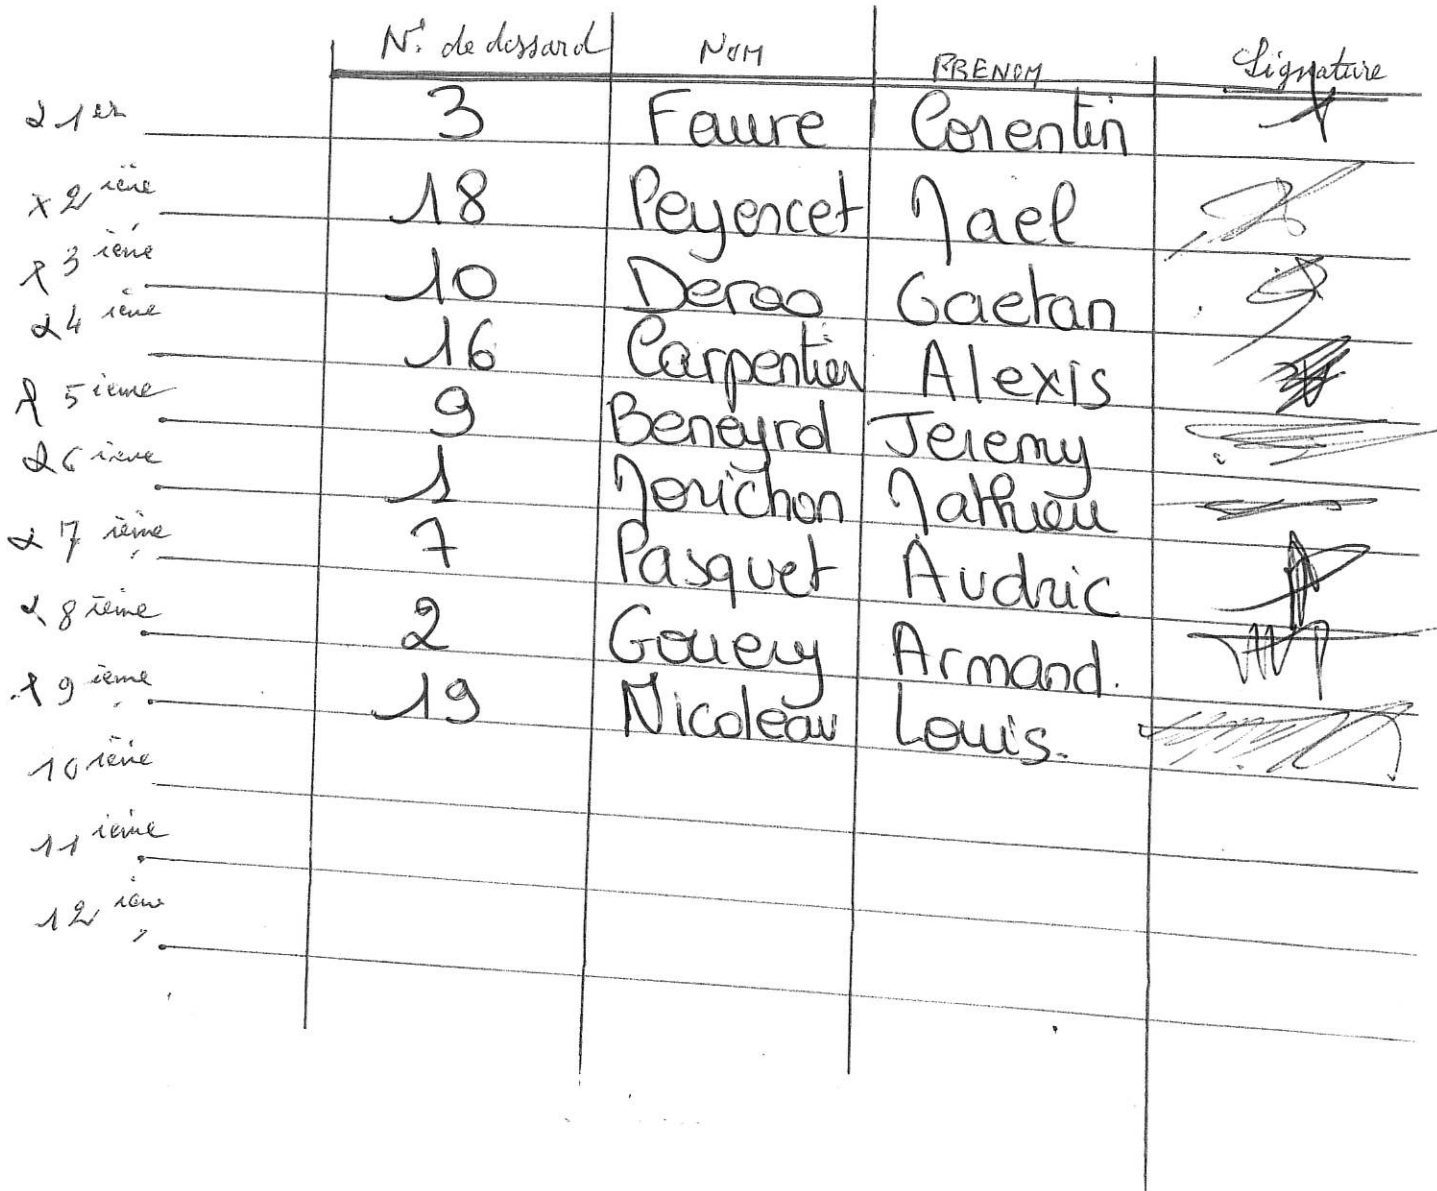 N° de dossard NOM PRENOM Signature
1er 3 Faure Corentin
2ième 18 Peyencet Mael
3ième 10 Derao Gaetan
4ième 16 Carpentier Alexis
5ième 9 Beneyrol Jeremy
6ième 1 Morichon Mathieu
7ième 7 Pasquet Audric
8ième 2 Gouery Armand.
9ième 19 Nicoleau Louis.
10ième
11ième
12ième